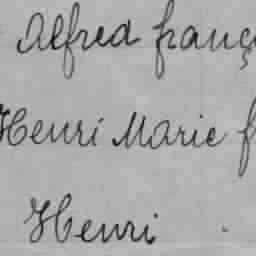 Alfred franç
Henri Marie f
Henri